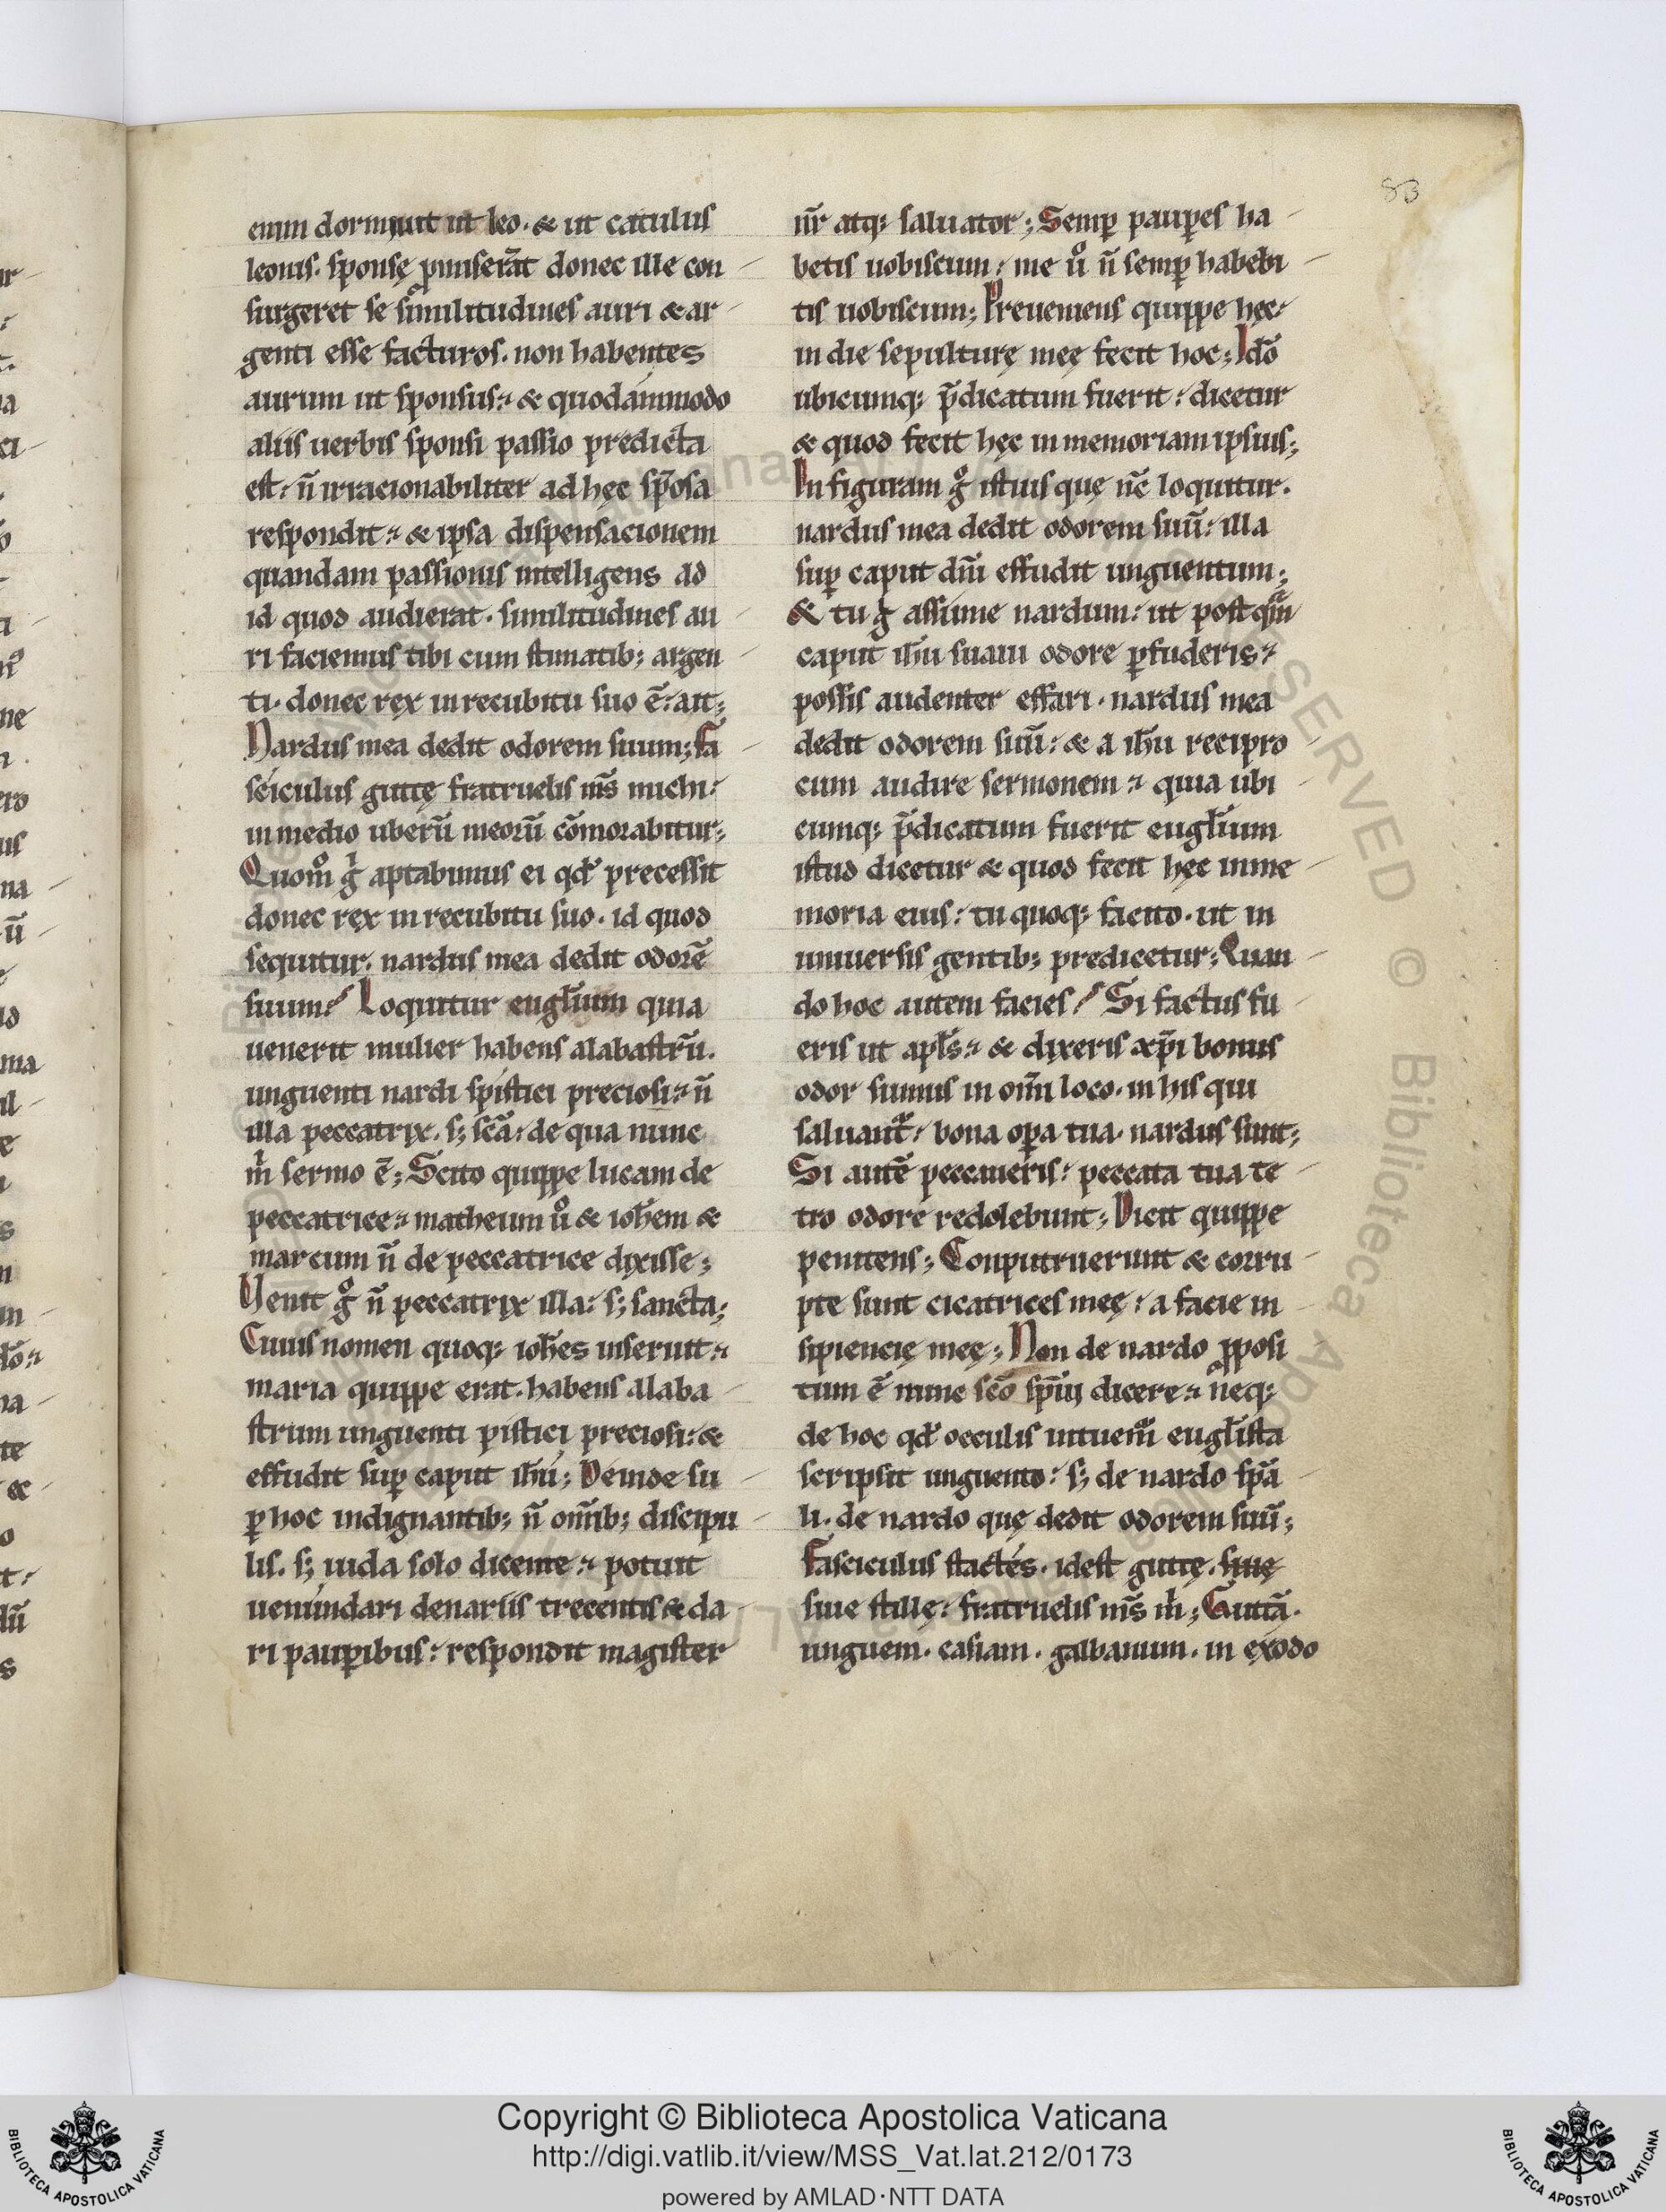 83
enim dormiuit ut leo. & ut catulus
leonis. sponsę ꝓmiserāt donec ille con
surgeret se similitudines auri & ar
genti esse facturos. non habentes
aurum ut sponsus & quodámmodo
aliis uerbis sponsi passio predicta
est: n̄ irracionabiliter ad hęc sp̄osa
respondit & ipsa dispensacionem
quandam passionis intelligens ad
id quod audierat. similitudines au
ri faciemus tibi cum stimatib; argen
ti. donec rex in recubitu suo ē: ait;
Nardus mea dedit odorem suum; Fa
sciculus guttę fratruelis m̄s michi:
in medio uberū meorū cōmorabitur;
Quom̊ g̊ aptabimus ei qd̛ precessit
donec rex in recubitu suo. id quod
sequitur. nardus mea dedit odorē
suum? Loquitur eugl̄ium quia
uenerit mulier habens alabastrū.
unguenti nardi spistici preciosi n̄
illa peccatrix. s; sc̄a: de qua nunc
m̊ sermo ē; Scito quippe lucam de
peccatrice matheum ů & ioh̄em &
marcum n̄ de peccatrice dixisse;
Uenit g̊ n̄ peccatrix illa: s; sancta;
Cuius nomen quoq; ioh̄es inseruit
maria quippe erat. habens alaba
strum unguenti pistici preciosi: &
effudit suꝑ caput ih̄u; Deinde su
ꝑ hoc indignantib; n̄ om̄ib; discipu
lis. s; iuda solo dicente potuit
uenúndari denariis trecentis & da
ri pauꝑibus: respondit magister
nr̄ atq; saluator; Semꝑ pauꝑes ha
betis uobiscum: me ů n̄ semꝑ habebi
tis uobiscum; Preueniens quippe hęc
in die sepulturę meę fecit hoc; Idō
ubicumq; p̄dicatum fuerit: dicetur
& quod fecit hęc in memoriam ipsius;
In figuram g̊ istius quę nc̄ loquitur.
nardus mea dedit odorem suū: illa
suꝑ caput dn̄i effudit unguentum;
& tu g̊ assume nardum: ut postqm̄
caput ih̄u suaui odore ꝑfuderis
possis audenter effari. nardus mea
dedit odorem suū: & a ih̄u recipro
cum audire sermonem quia ubi
cumq; p̄dicatum fuerit eugl̄ium
istud dicetur & quod fecit hęc in me
moria eius: tu quoq; facito. ut in
uniuersis gentib; predicetur; Quan
do hoc autem facies? Si factus fu
eris ut apl̄s & dixeris xp̄i bonus
odor sumus in om̄i loco. in his qui
saluant᷑: bona oꝑa tua. nardus sunt;
Si autē peccaueris: peccata tua te
tro odore redolebunt; Dicit quippe
penitens; Conputruerunt & corru
pte sunt cicatrices meę: a facie in
sipiencię meę; Non de nardo ꝓposi
tum ē nunc sc̄o sp̄ui dicere neq;
de hoc qd̛ occulis intuemr̄ eugl̄ista
scripsit unguento: s; de nardo sp̄a
li. de nardo quę dedit odorem suū;
Fasciculus stactés. idest guttę. siue
siue stillę: fratruelis m̄s m̊; Guttā.
unguem. casiam. galbanum. in exodo
Copyright © Biblioteca Apostolica Vaticana
http://digi.vatlib.it/view/MSS_Vat.lat.212/0173
powered by AMLAD·NTT DATA
BIBLIOTECA APOSTOLICA VATICANA
BIBLIOTECA APOSTOLICA VATICANA